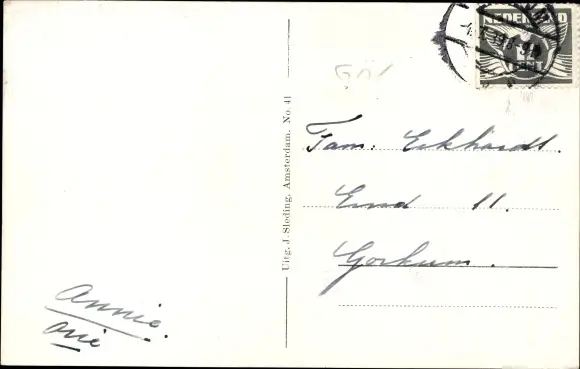 NEDERLAND
CENT
Fam. Eckhardt.
Eind 11.
Gorkum.
Uitg. J. Sleding, Amsterdam. No. 41
Annie.